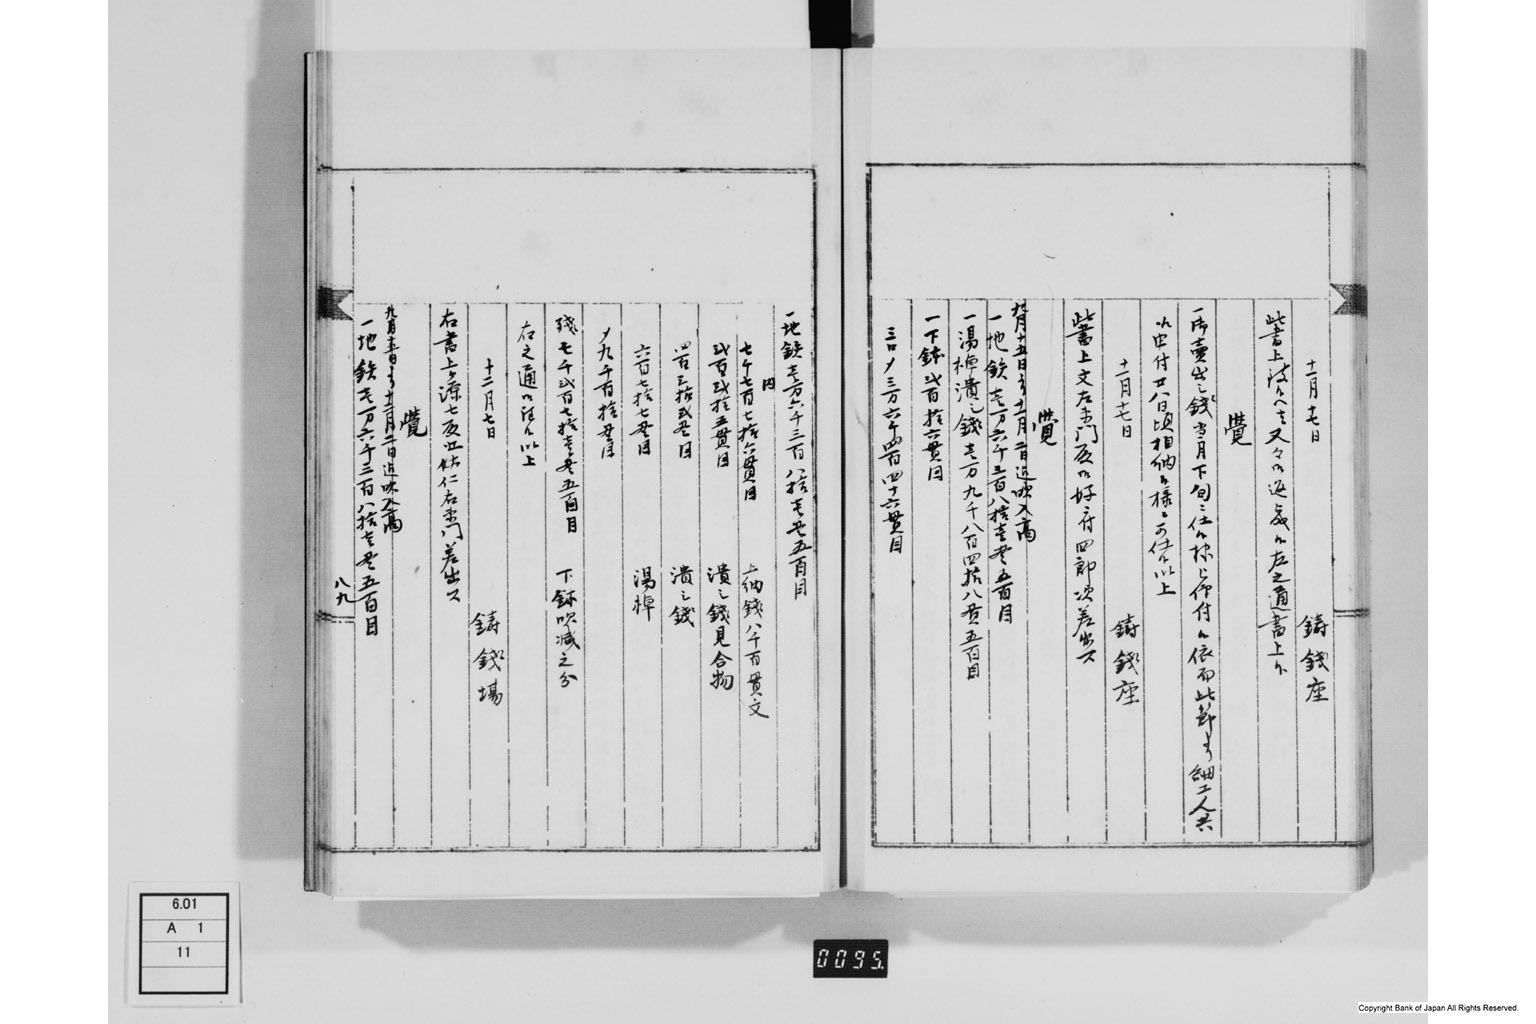 十一月十七日
鋳銭座
此書上決候へは又々御返卻左之通書上ル
覺
一御賣出シ之銭當月下旬ニ仕候様被仰付候依而此節ゟ細工人共
江申付廿八日頃相納候様ニ可仕候以上
十一月十七日
鋳銭座
此書上文左衛門殿御好ニ付四郎次差出ス
覺
九月十五日ゟ十一月二日迄吹入高
一地鉄壱万六千三百八拾壱貫五百目
一湯棹潰シ銭壱万九千八百四拾八貫五百目
一下鉢弐百拾六貫目
三口〆三万六千四百四十六貫目
一地鉄壱万六千三百八拾壱貫五百目
内
七千七百七拾六貫目 上納銭八千百貫文
弐百弐拾五貫目 潰シ銭見合物
四百三拾弐貫目 潰シ銭
六百七拾七貫目 湯棹
〆九千百拾貫目
残七千弐百七拾壱貫五百目 下鉢吹減之分
右之通御座候以上
十二月七日
鋳銭場
右書上ケ源七殿 仁右衛門差出ス
覺
九月十五日ゟ十一月二日迄吹入高
一地鉄壱万六千三百八拾壱貫五百目
八九
6.01
A 1
11
0095.
Copyright Bank of Japan All Rights Reserved.